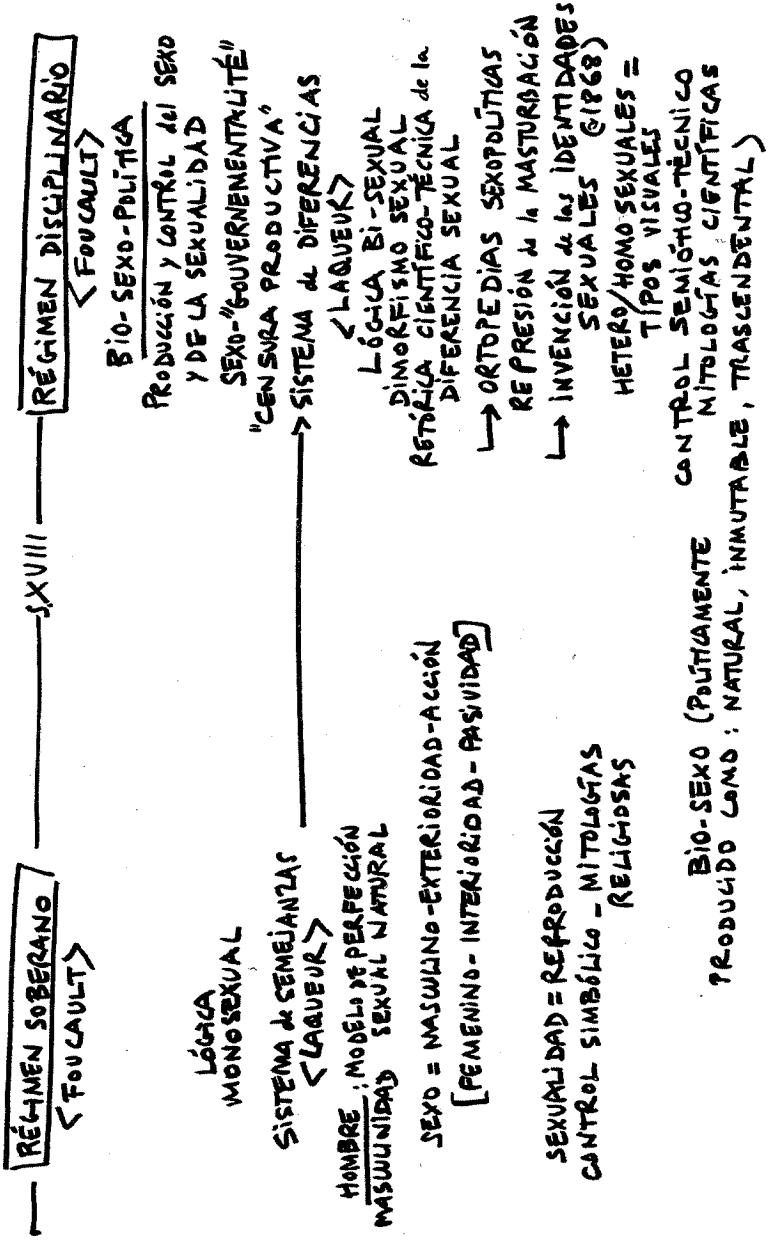 RÉGIMEN SOBERANO
<FOUCAULT>
LÓGICA
MONOSEXUAL
SISTEMA de SEMEJANZAS
<LAQUEUR>
HOMBRE: MODELO DE PERFECCIÓN
MASCULINIDAD SEXUAL NATURAL
SEXO = MASCULINO-EXTERIORIDAD-ACCIÓN
[FEMENINO-INTERIORIDAD-PASIVIDAD]
SEXUALIDAD = REPRODUCCIÓN
CONTROL SIMBÓLICO - MITOLOGÍAS
RELIGIOSAS
S.XVIII
RÉGIMEN DISCIPLINARIO
<FOUCAULT>
BIO-SEXO-POLÍTICA
PRODUCCIÓN y CONTROL del SEXO
Y DE LA SEXUALIDAD
SEXO-"GOUVERNEMENTALITÉ"
"CENSURA PRODUCTIVA"
SISTEMA de DIFERENCIAS
<LAQUEUR>
LÓGICA BI-SEXUAL
DIMORFISMO SEXUAL
RETÓRICA CIENTÍFICO-TÉCNICA de la
DIFERENCIA SEXUAL
↳ ORTOPEDIAS SEXOPOLÍTICAS
REPRESIÓN de la MASTURBACIÓN
↳ INVENCIÓN de las IDENTIDADES
SEXUALES (@1868)
HETERO/HOMOSEXUALES =
TIPOS VISUALES
CONTROL SEMIÓTICO-TÉCNICO
MITOLOGÍAS CIENTÍFICAS
BIO-SEXO (POLÍTICAMENTE
PRODUCIDO COMO: NATURAL, INMUTABLE, TRASCENDENTAL)